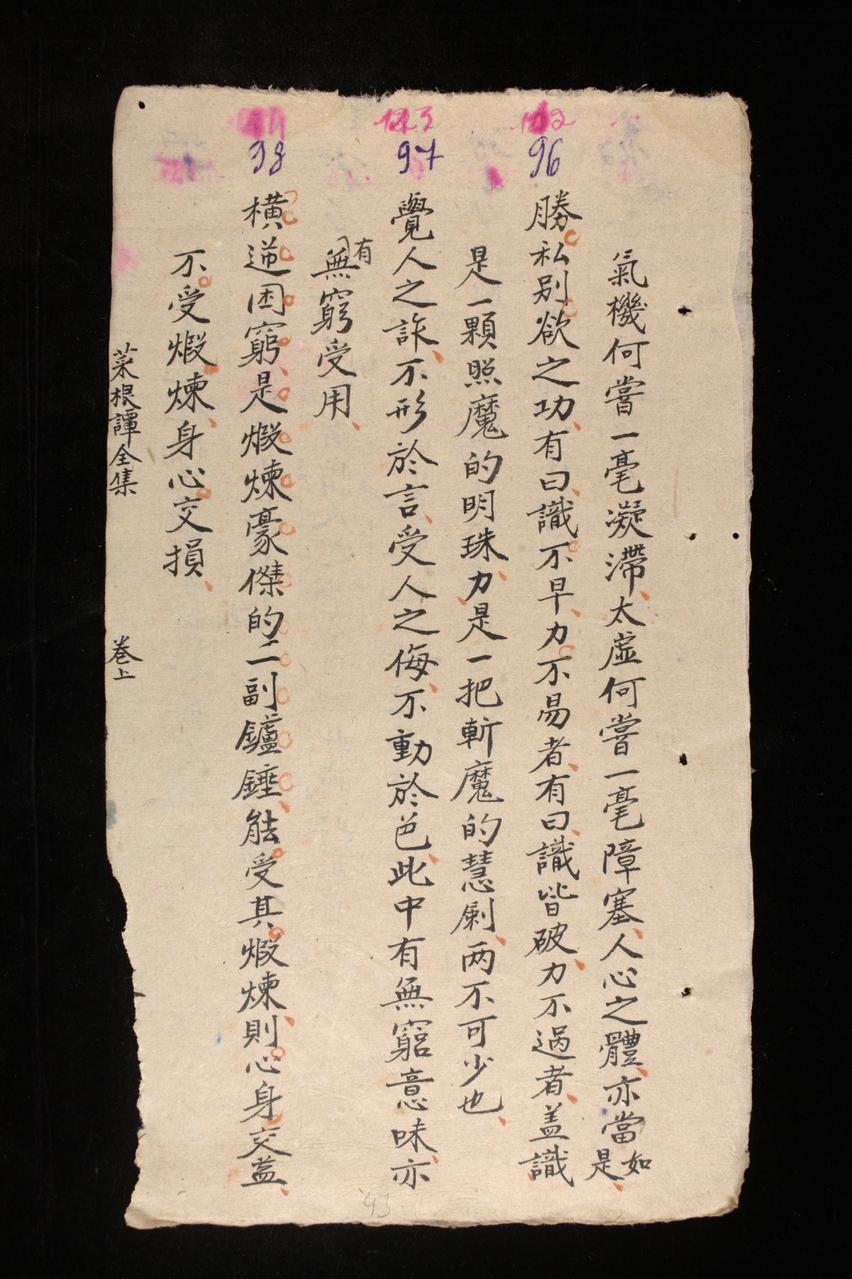 氣機何嘗一毫凝滯太虛何嘗一毫障塞人心之體亦當如是
96
勝私别欲之功有曰識不早力不易者有曰識皆破力不過者盖識
是一顆照魔的明珠力是一把斬魔的慧劍两不可少也
97
覺人之詐不形於言受人之侮不動於色此中有無窮意味亦
有無窮受用
98
橫逆困窮是煅煉豪傑的一副鑪錘能受其煅煉則心身交益
不受煅煉身心交損
菜根譚全集 卷上
93